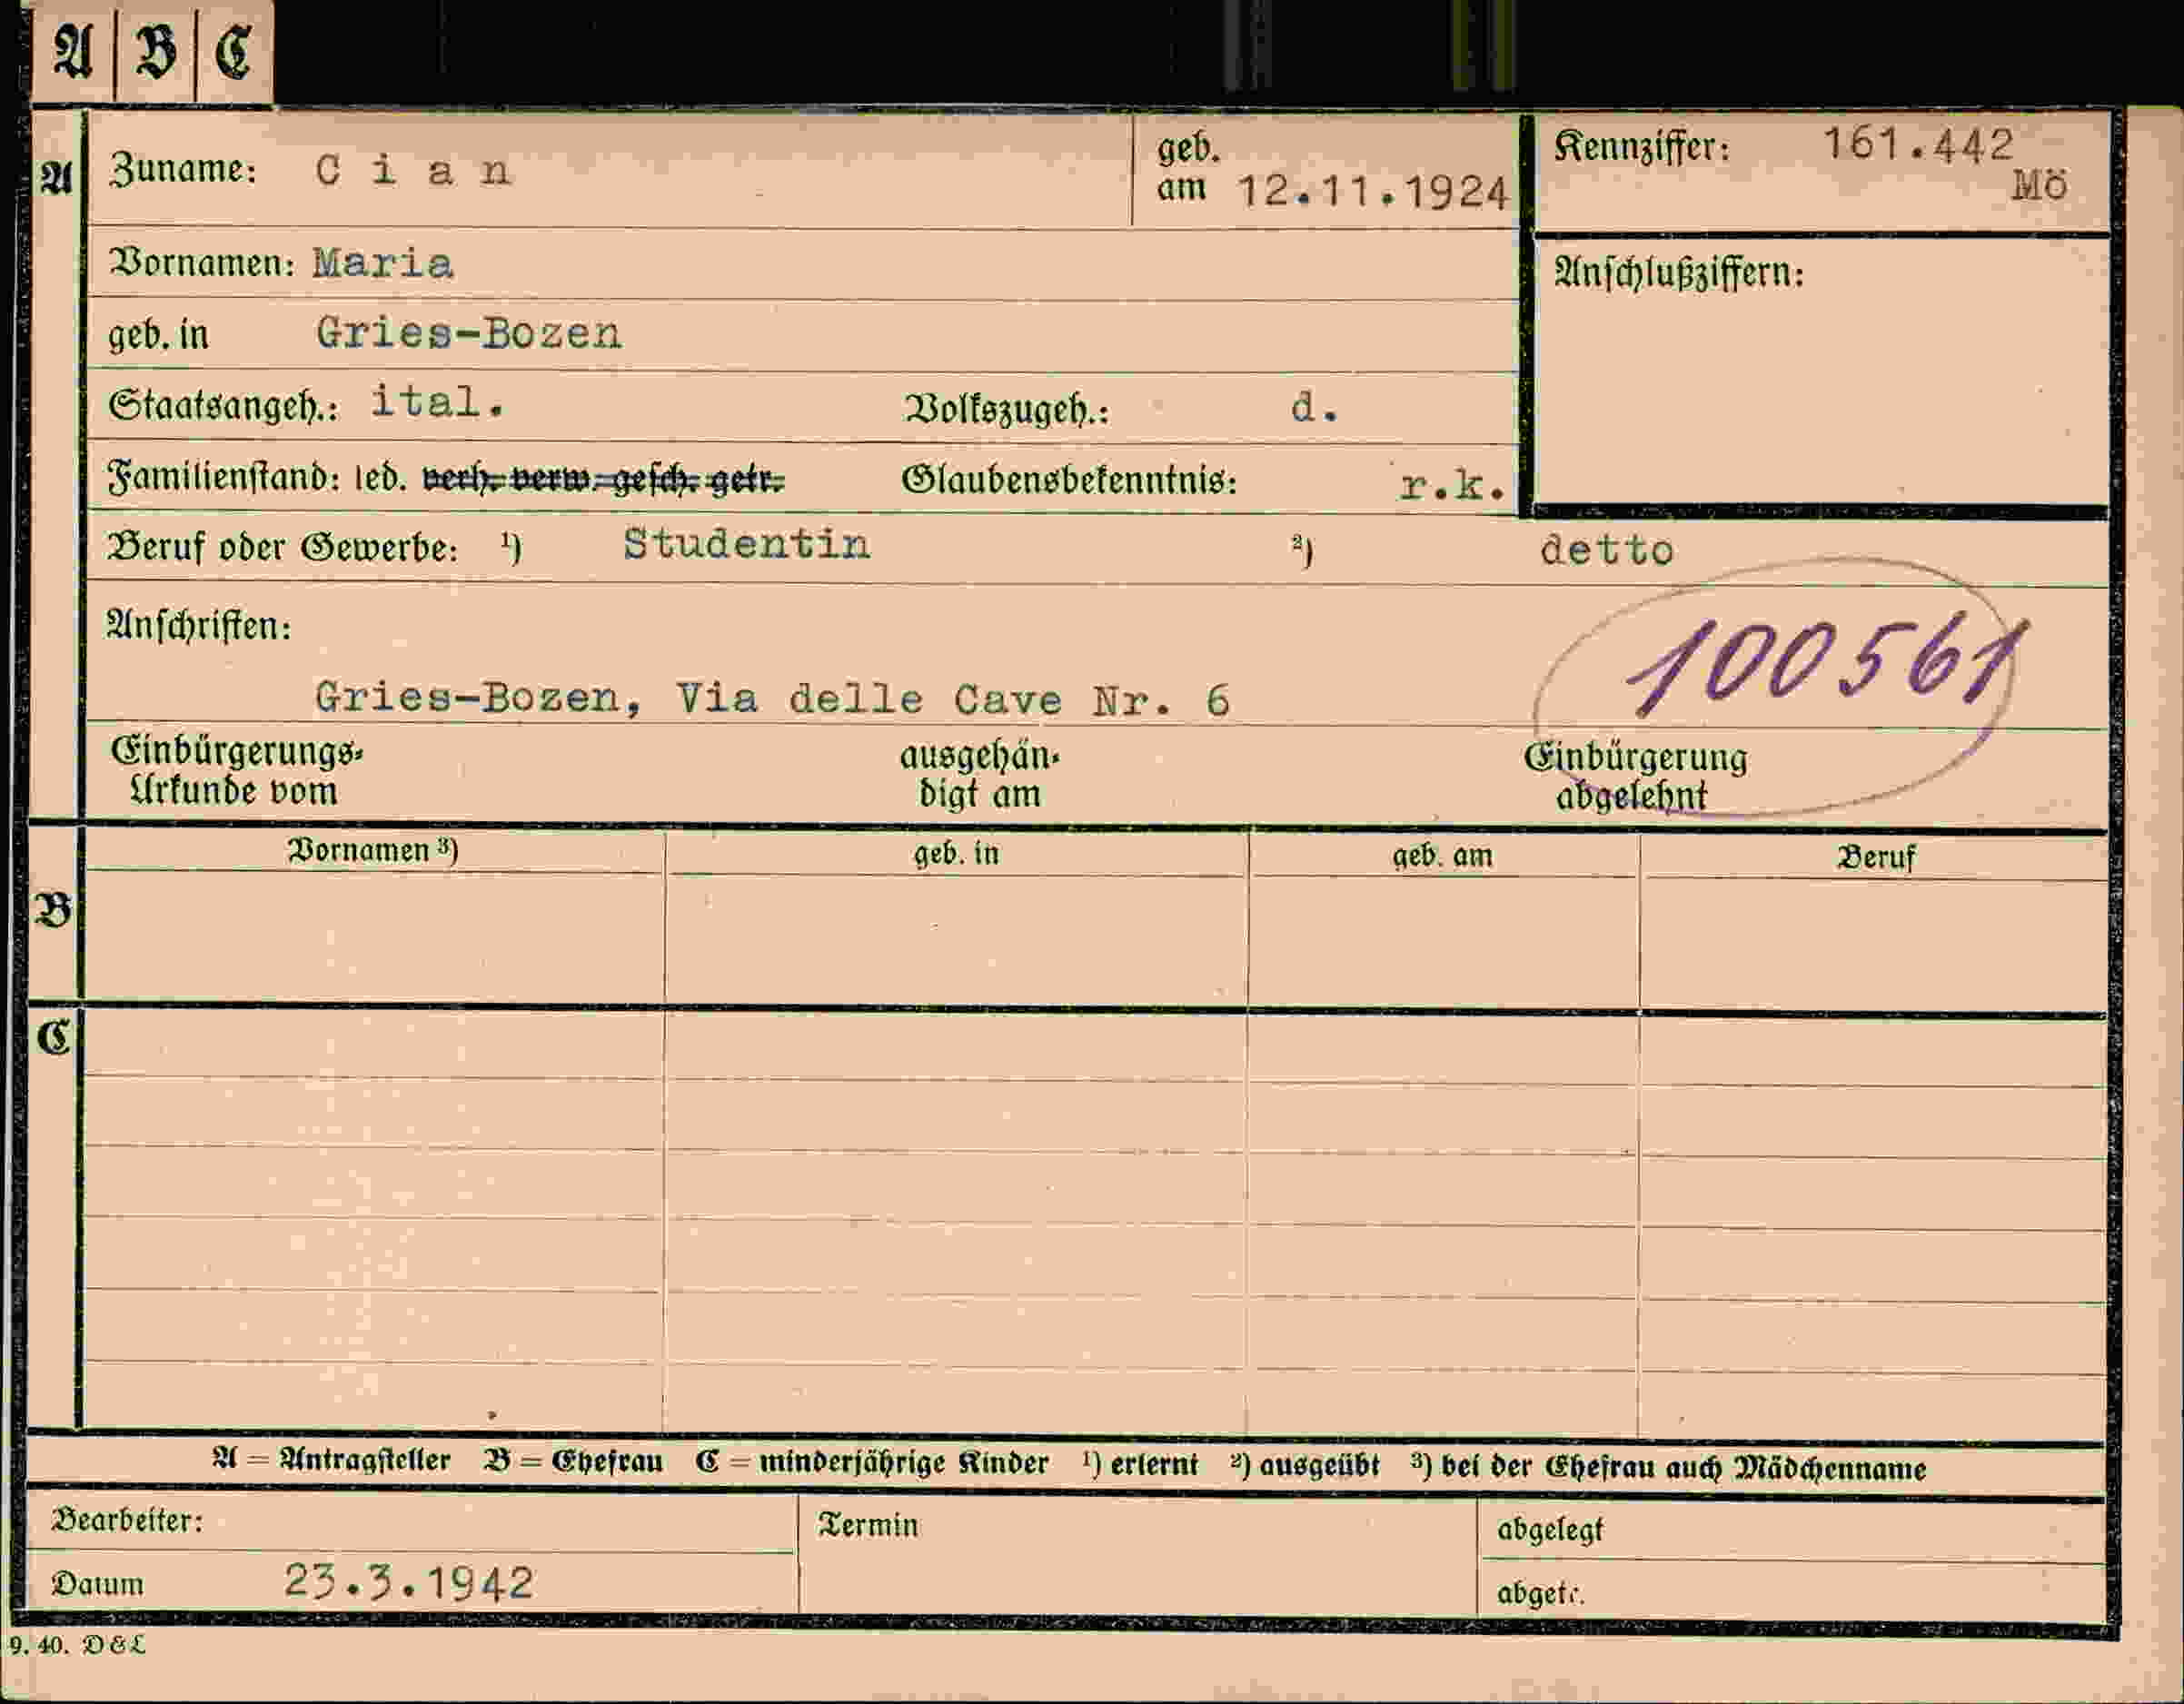 A B C
A Zuname: Cian geb. am 12.11.1924 Kennziffer: 161.442 Mö
Vornamen: Maria Anschlußziffern:
geb. in Gries-Bozen
Staatsangeh.: ital. Volkszugeh.: d.
Familienstand: led. verh. verw. gesch. getr. Glaubensbekenntnis: r.k.
Beruf oder Gewerbe: ¹) Studentin ²) detto
Anschriften: 100561
Gries-Bozen, Via delle Cave Nr. 6
Einbürgerungs- ausgehän- Einbürgerung
Urkunde vom digt am abgelehnt
Vornamen ³) geb. in geb. am Beruf
B
C
A = Antragsteller B = Ehefrau C = minderjährige Kinder ¹) erlernt ²) ausgeübt ³) bei der Ehefrau auch Mädchenname
Bearbeiter: Termin abgelegt
Datum 23.3.1942 abgetr.
9. 40. D & L